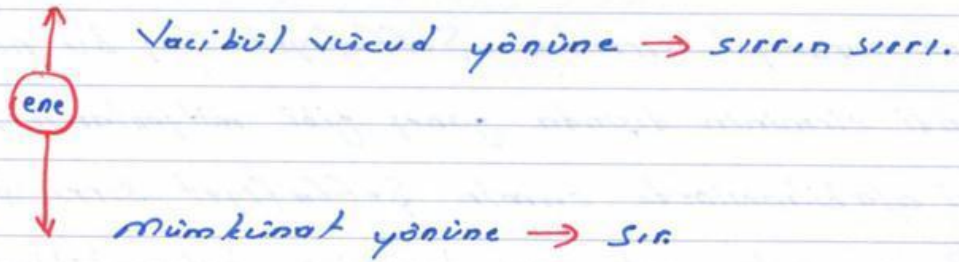 Vacibül vücud yönüne → sırrın sırrı.
ene
Mümkünat yönüne → sır.